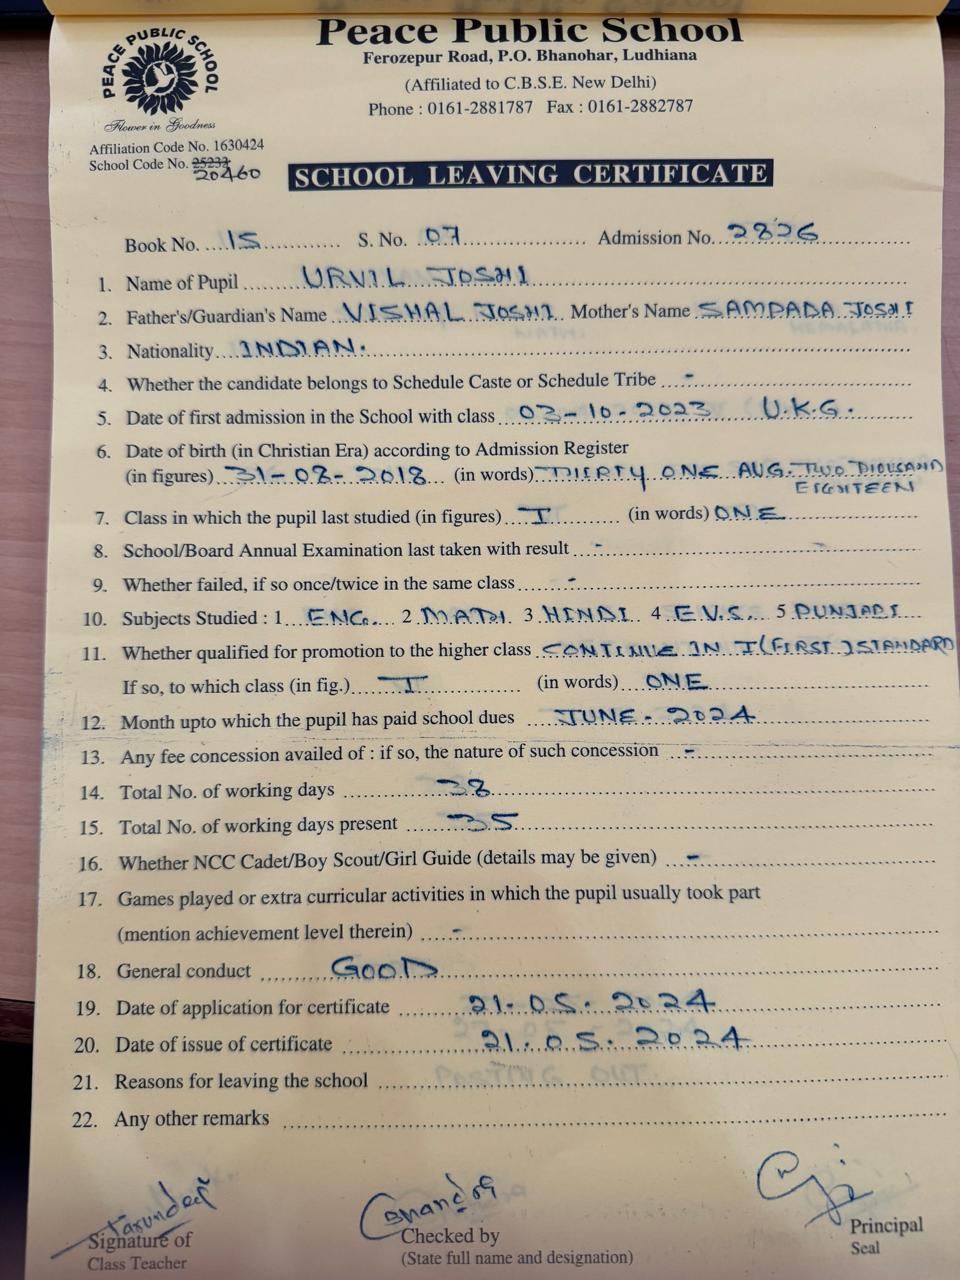 Peace Public School
Ferozepur Road, P.O. Bhanohar, Ludhiana
(Affiliated to C.B.S.E. New Delhi)
Phone : 0161-2881787 Fax : 0161-2882787
PEACE PUBLIC SCHOOL
Flower in Goodness
Affiliation Code No. 1630424
School Code No. 25232
20460
SCHOOL LEAVING CERTIFICATE
Book No. 15 S. No. 07 Admission No. 2826
1. Name of Pupil URVIL JOSHI
2. Father's/Guardian's Name VISHAL JOSHI Mother's Name SAMPADA JOSHI
3. Nationality INDIAN.
4. Whether the candidate belongs to Schedule Caste or Schedule Tribe -
5. Date of first admission in the School with class 03-10-2023 U.K.G.
6. Date of birth (in Christian Era) according to Admission Register
(in figures) 31-08-2018 (in words) THIRTY ONE AUG. TWO THOUSAND
EIGHTEEN
7. Class in which the pupil last studied (in figures) I (in words) ONE
8. School/Board Annual Examination last taken with result -
9. Whether failed, if so once/twice in the same class -
10. Subjects Studied : 1 ENG. 2 MATH 3 HINDI 4 E.V.S. 5 PUNJABI
11. Whether qualified for promotion to the higher class CONTINUE IN I (FIRST) STANDARD
If so, to which class (in fig.) I (in words) ONE
12. Month upto which the pupil has paid school dues JUNE - 2024
13. Any fee concession availed of : if so, the nature of such concession -
14. Total No. of working days 38
15. Total No. of working days present 35
16. Whether NCC Cadet/Boy Scout/Girl Guide (details may be given) -
17. Games played or extra curricular activities in which the pupil usually took part
(mention achievement level therein) -
18. General conduct GOOD
19. Date of application for certificate 21.05.2024
20. Date of issue of certificate 21.05.2024
21. Reasons for leaving the school
22. Any other remarks
Signature of
Class Teacher
Checked by
(State full name and designation)
Principal
Seal